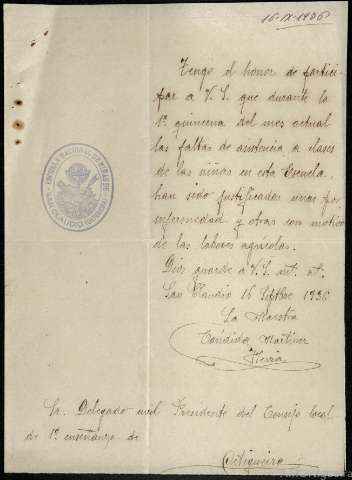 16-IX-1936
Tengo el honor de partici-
par a V.S. que durante la
1ª quincena del mes actual
las faltas de asistencia a clases
de las niñas en esta Escuela
han sido justificadas unas por
enfermedad y otras con motivo
de las labores agricolas.
Dios guarde a V.S. m. a.
San Claudio 16 Septbre 1936
La Maestra
Cándida Martinez
ESCUELA NACIONAL DE NIÑAS DE
SAN CLAUDIO
Sr. Delegado civil Presidente del Consejo local
de 1ª enseñanza de
Ortigueira